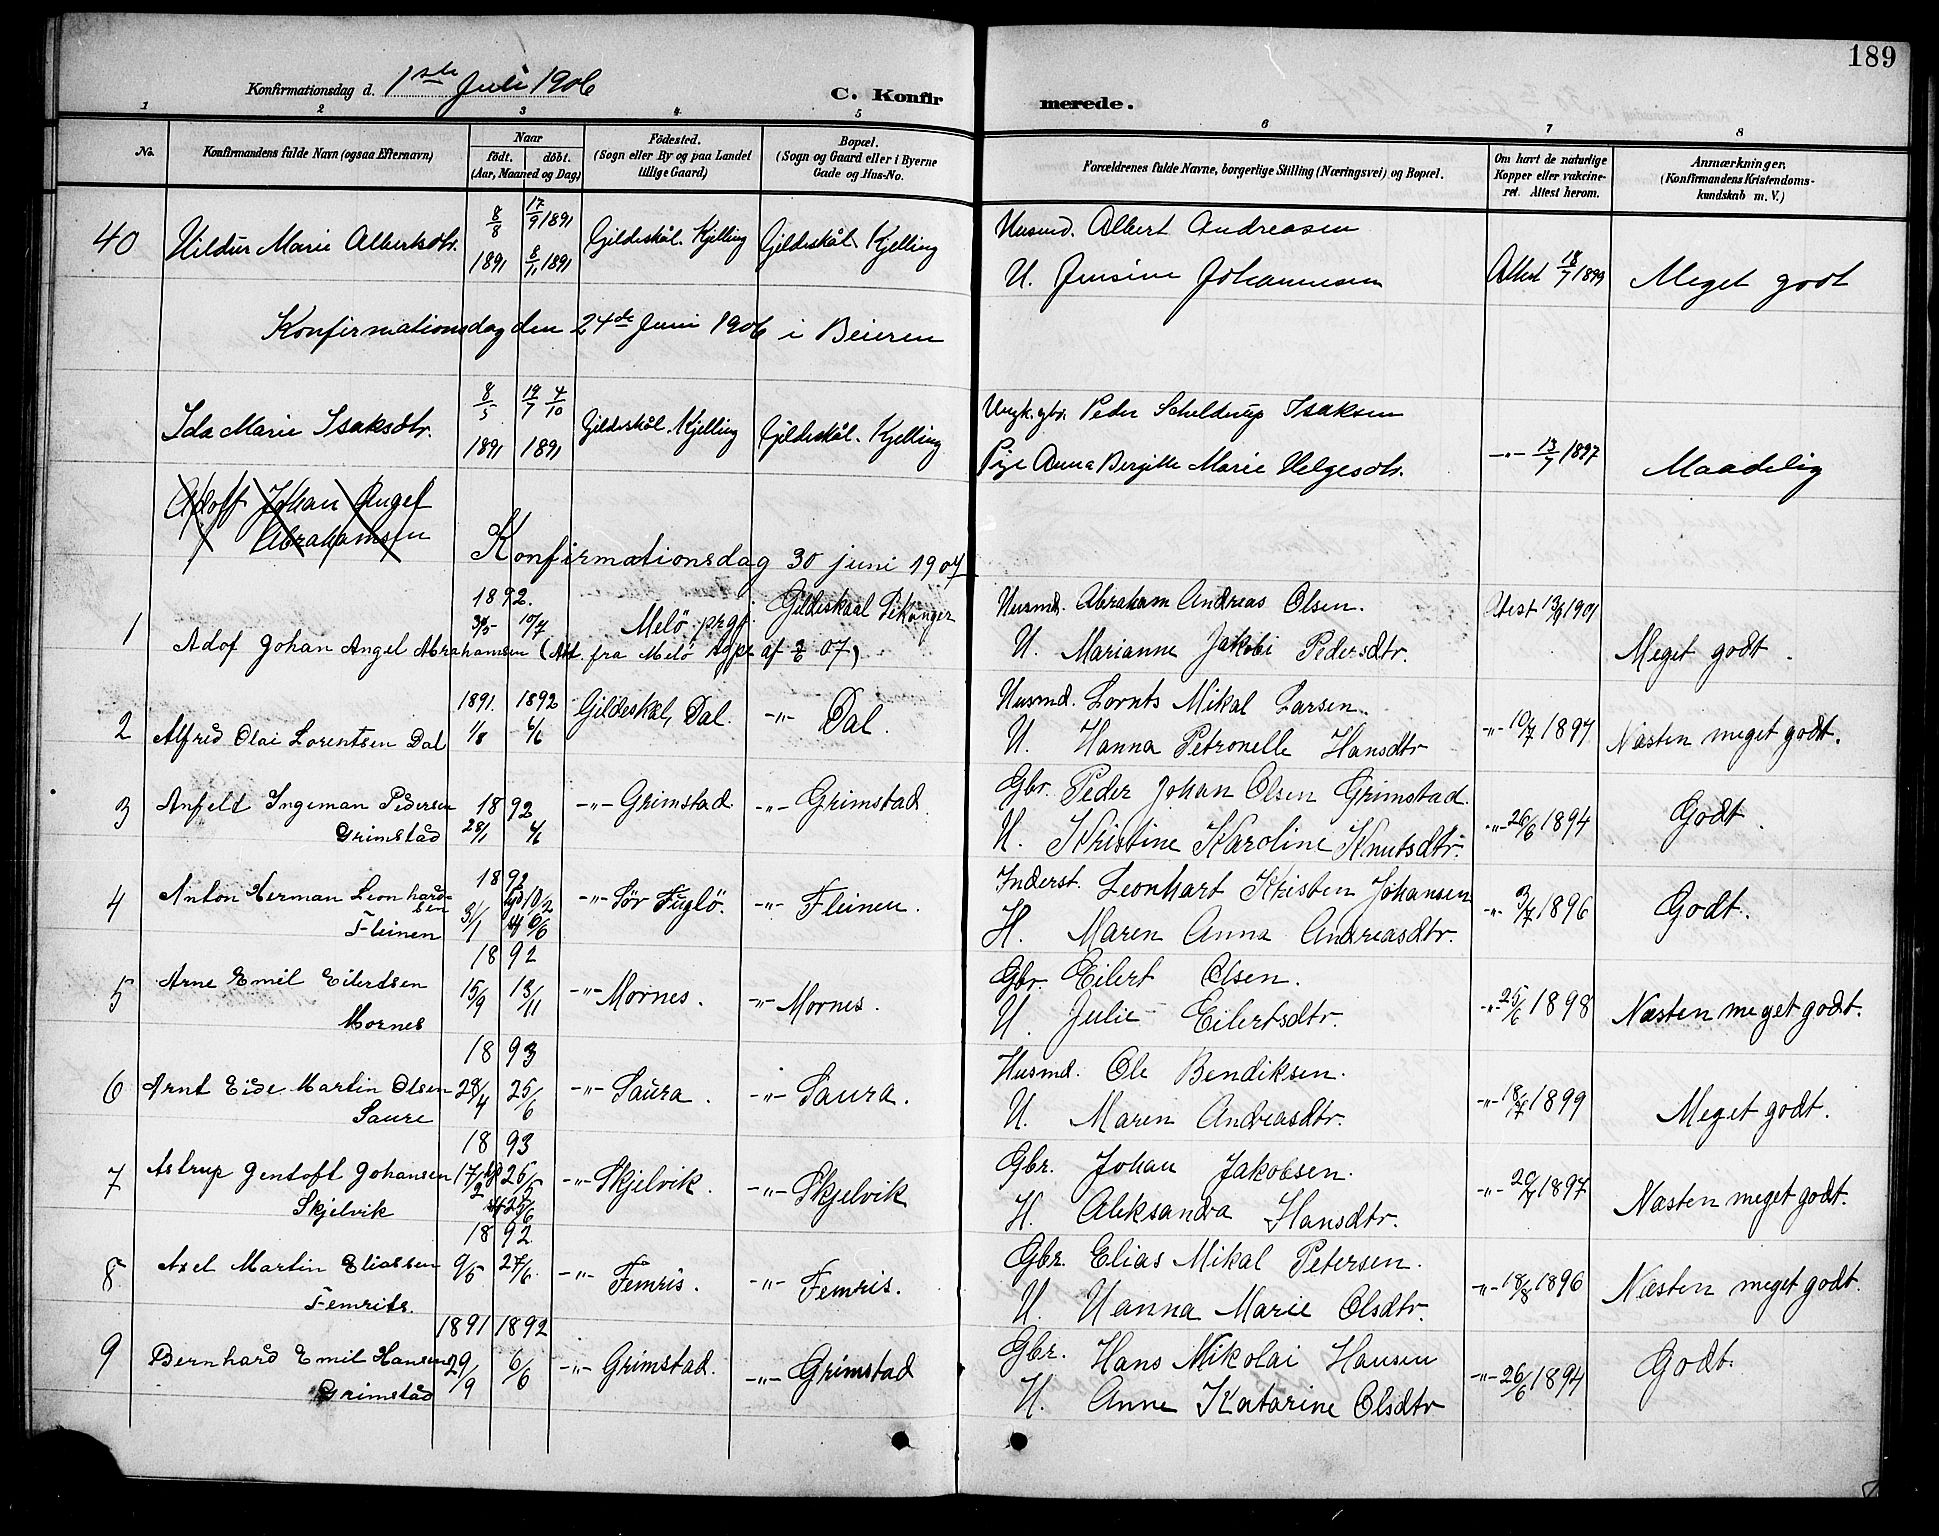 189
Konfirmationsdag d. 1ste Juli 1906
C. Konfirmerede.
1 2 3 4 5 6 7 8
No.
Konfirmandens fulde Navn (ogsaa Efternavn)
Naar
födt. döbt.
(Aar, Maaned og Dag)
Födested.
(Sogn eller By og paa Landet
tillige Gaard)
Bopæl.
(Sogn og Gaard eller i Byerne
Gade og Hus-No.
Forældrenes fulde Navne, borgerlige Stilling (Næringsvei) og Bopæl.
Om havt de naturlige
Kopper eller vakcine-
ret. Attest herom.
Anmærkninger.
(Konfirmandens Kristendoms-
kundskab m. V.)
40 Hildur Marie Albertsdtr. 8/8 1891 17/9 1891 8/11 1891 Gildeskål. Kjelling Gildeskål. Kjelling
Husmd. Albert Andreasen
H. Jensine Johannesen Attest 18/7 1899 Meget godt
Konfirmationsdag den 24de Juni 1906 i Beieren
Ida Marie Isaksdtr. 8/5 1891 19/7 4/10 1891 Gildeskål. Kjelling Gildeskål. Kjelling
Ungk. gbr. Peder Schelderup Isaksen
Pige Anna Bergitte Marie Helgesdtr. -"- 13/7 1897 Maadelig
Adolf Johan Angel
Abrahamsen
Konfirmationsdag 30 juni 1907
1 Adof Johan Angel Abrahamsen (Att. fra Melö Sgpr. af 2/6 07) 1892. 3/5 10/7 Melö prgj. Gildeskaal
Husmd. Abraham Andreas Olsen.
U. Marianne Jakobi Pedersdtr. Meget godt.
2 Alfred Olai Lorentsen Dal 1891. 1/8 1892 6/6 Gildeskål, Dal. -"- Dal.
Husmd. Lornts Mikal Larsen.
U. Hanna Petronelle Hansdtr -"- 10/7 1897 Næsten meget godt.
3 Anfelt Ingeman Pedersen
Grimstad 1892 28/1 6/6 -"- Grimstad. -"- Grimstad
Gbr. Peder Johan Olsen Grimstad.
U. Kristine Karoline Knutsdtr. -"- 26/6 1894 Godt.
4 Anton Herman Leonhard-
sen
Fleinen 1892 31/1 10/2 6/6 -"- Sör Fuglö. -"- Fleinen.
Inderst. Leonhart Kristen Johansen
H. Maren Anna Andreasdtr. -"- 3/7 1896 Godt.
5 Arne Emil Eilerdsen
Mornes 1892 15/9 13/11 -"- Mornes. -"- Mornes.
Gbr. Eilert Olsen.
U. Julie Eilertsdtr. -"- 25/6 1898 Næsten meget godt.
6 Arnt Eide Martin Olsen
Saure 1893 28/4 25/6 -"- Saura. -"- Saura.
Husmd. Ole Bendiksen.
U. Maren Andreasdtr. -"- 18/7 1899 Meget godt.
7 Astrup Gentoft Johansen
Skjelvik 1893 17/2 26/5 25/6 -"- Skjelvik. -"- Skjelvik
Gbr. Johan Jakobsen.
H. Aleksandra Hansdtr. -"- 20/7 1897 Næsten meget godt.
8 Axel Martin Eliassen
Femrits. 1892 9/5 27/6. -"- Femris. -"- Femris.
Gbr. Elias Mikal Petersen.
U. Hanna Marie Olsdtr. -"- 18/8 1896 Næsten meget godt.
9 Bernhard Emil Hansen
Grimstad 1891 29/9 1892 6/6 -"- Grimstad. -"- Grimstad
Gbr. Hans Nikolai Hansen
H. Anne Katarine Olsdtr -"- 26/6 1894 Godt.